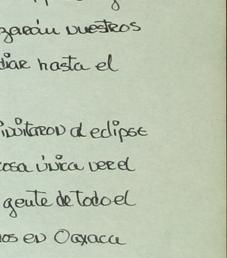 zarán nuestros
diar hasta el
invitaron al eclipse
cosa única ver el
gente de todo el
nos en Oaxaca